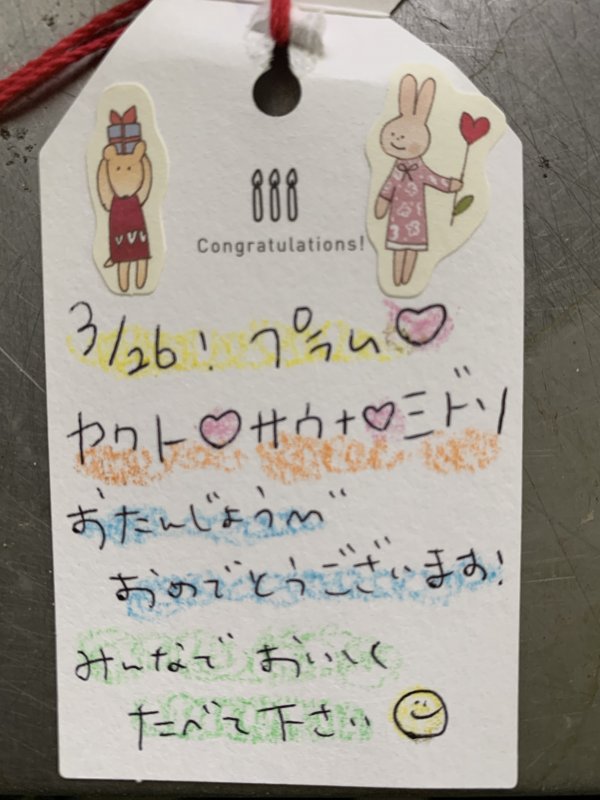 Congratulations!
3/26! プラム♡
ヤクト♡サウナ♡ミドリ
おたんじょうび
おめでとうございます!
みんなでおいしく
たべて下さい